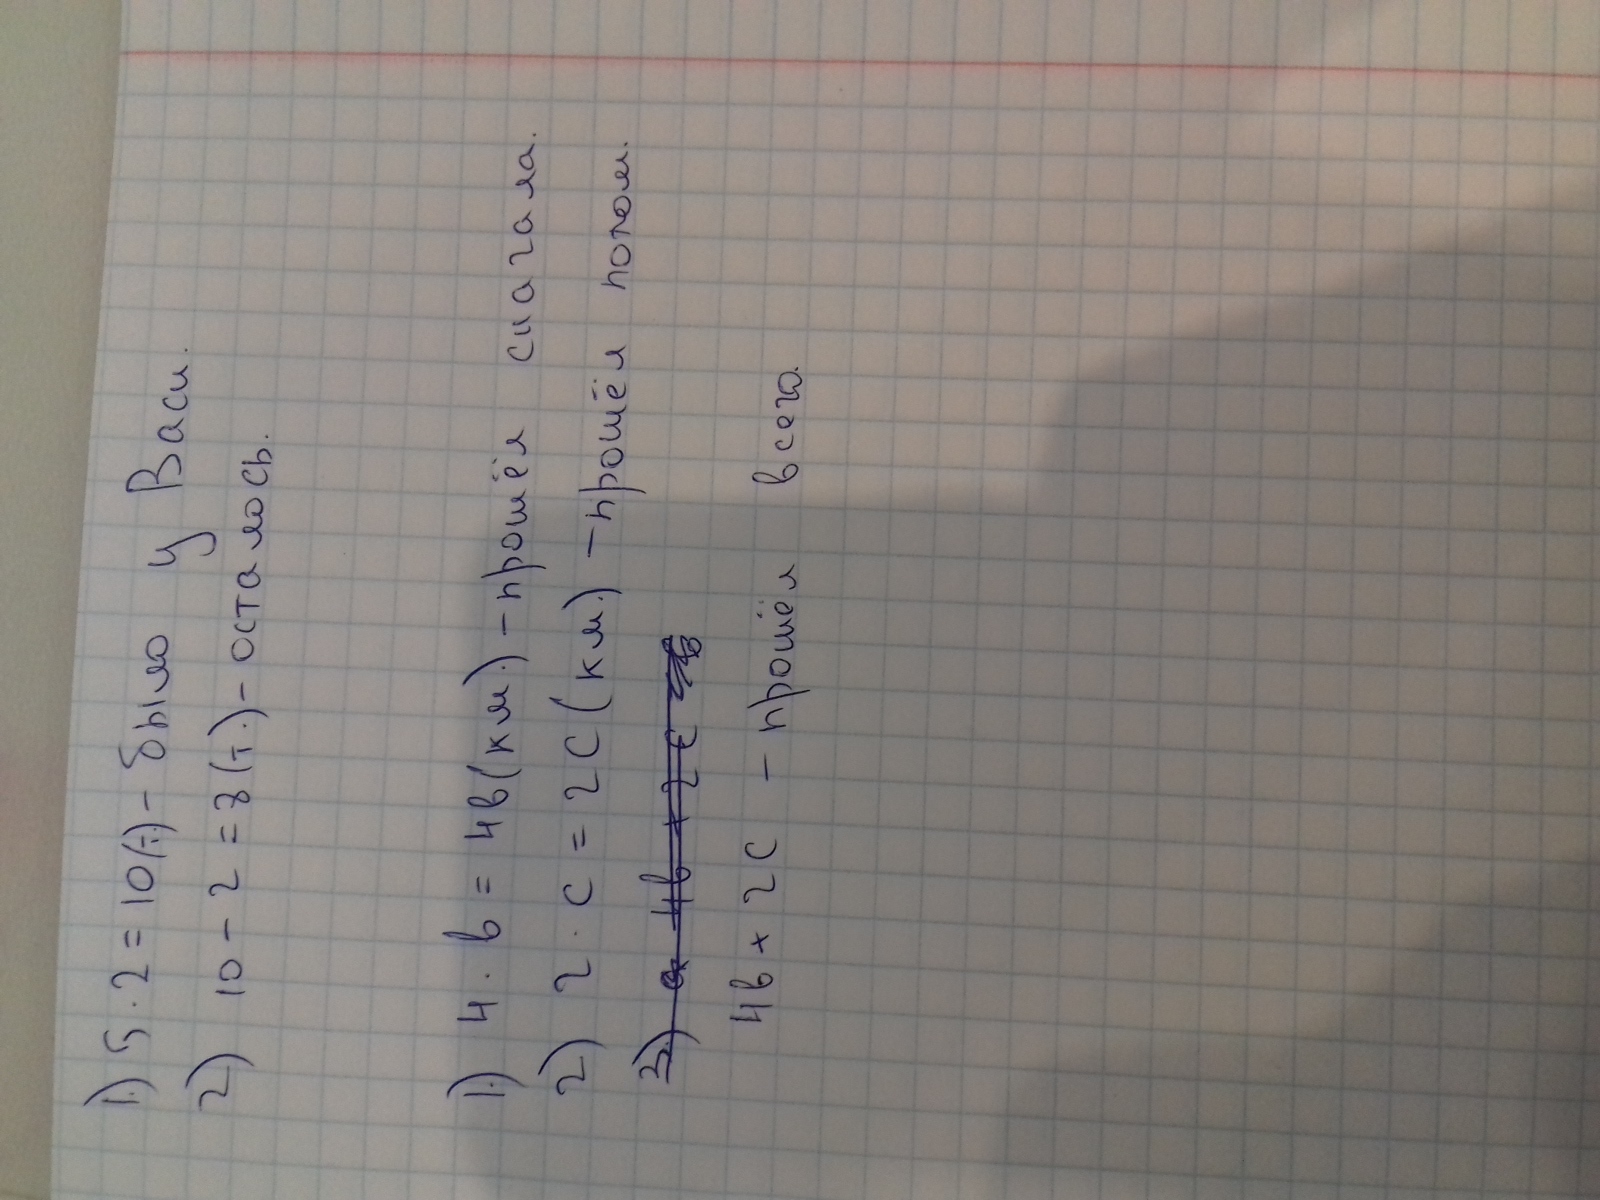 1) 5 · 2 = 10(т.) - было у Васи.
2) 10 - 2 = 8(т.) - осталось.
1) 4 · в = 4в(км.) - прошёл сначала.
2) 2 · с = 2с(км.) - прошёл потом.
3) 4в + 2с
4в + 2с - прошёл всего.